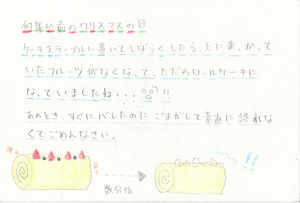 何年か前のクリスマスの日
ケーキをテーブルに置いてしばらくしたら、上に乗っかって
いたフルーツがなくなって、ただのロールケーキに
なっていましたね...!!
あのとき、すぐにバレたのに ごまかして素直に 謝れな
くてごめんなさい。
数分後
!!